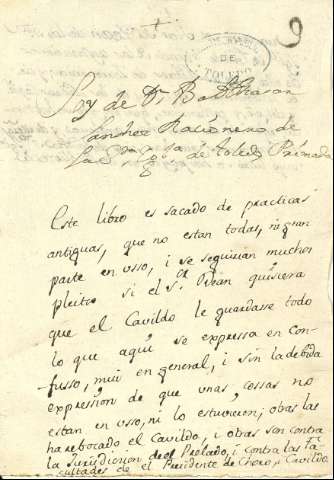 9
DE
TOLEDO
Soy de Dn. Balthasar
Sanchez Racionero de
la Sta. Yga. de Toledo Primada
Este libro es sacado de practicas
antiguas, que no estan todas, ni gran
parte en usso, i se seguirian muchos
pleitos si el Sr. Dean quisiera
que el Cavildo le guardasse todo
lo que aqui se expressa en con-
fusso, mui en general, i sin la debida
expression de que unas cossas no
estan en usso, ni lo estuvieron, otras las
ha rebocado el Cavildo, i otras son contra
la Jurisdicion de el Prelado, i contra las fa-
cultades de el Presidente de Choro, i Cavildo.